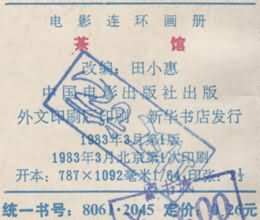 电影连环画册
茶 馆
改编：田小惠
中国电影出版社出版
外文印刷厂印刷 新华书店发行
1983年3月第1版
1983年3月北京第1次印刷
开本：787×1092毫米1/64 印张：
统一书号：8061·2045 定价：0.26元